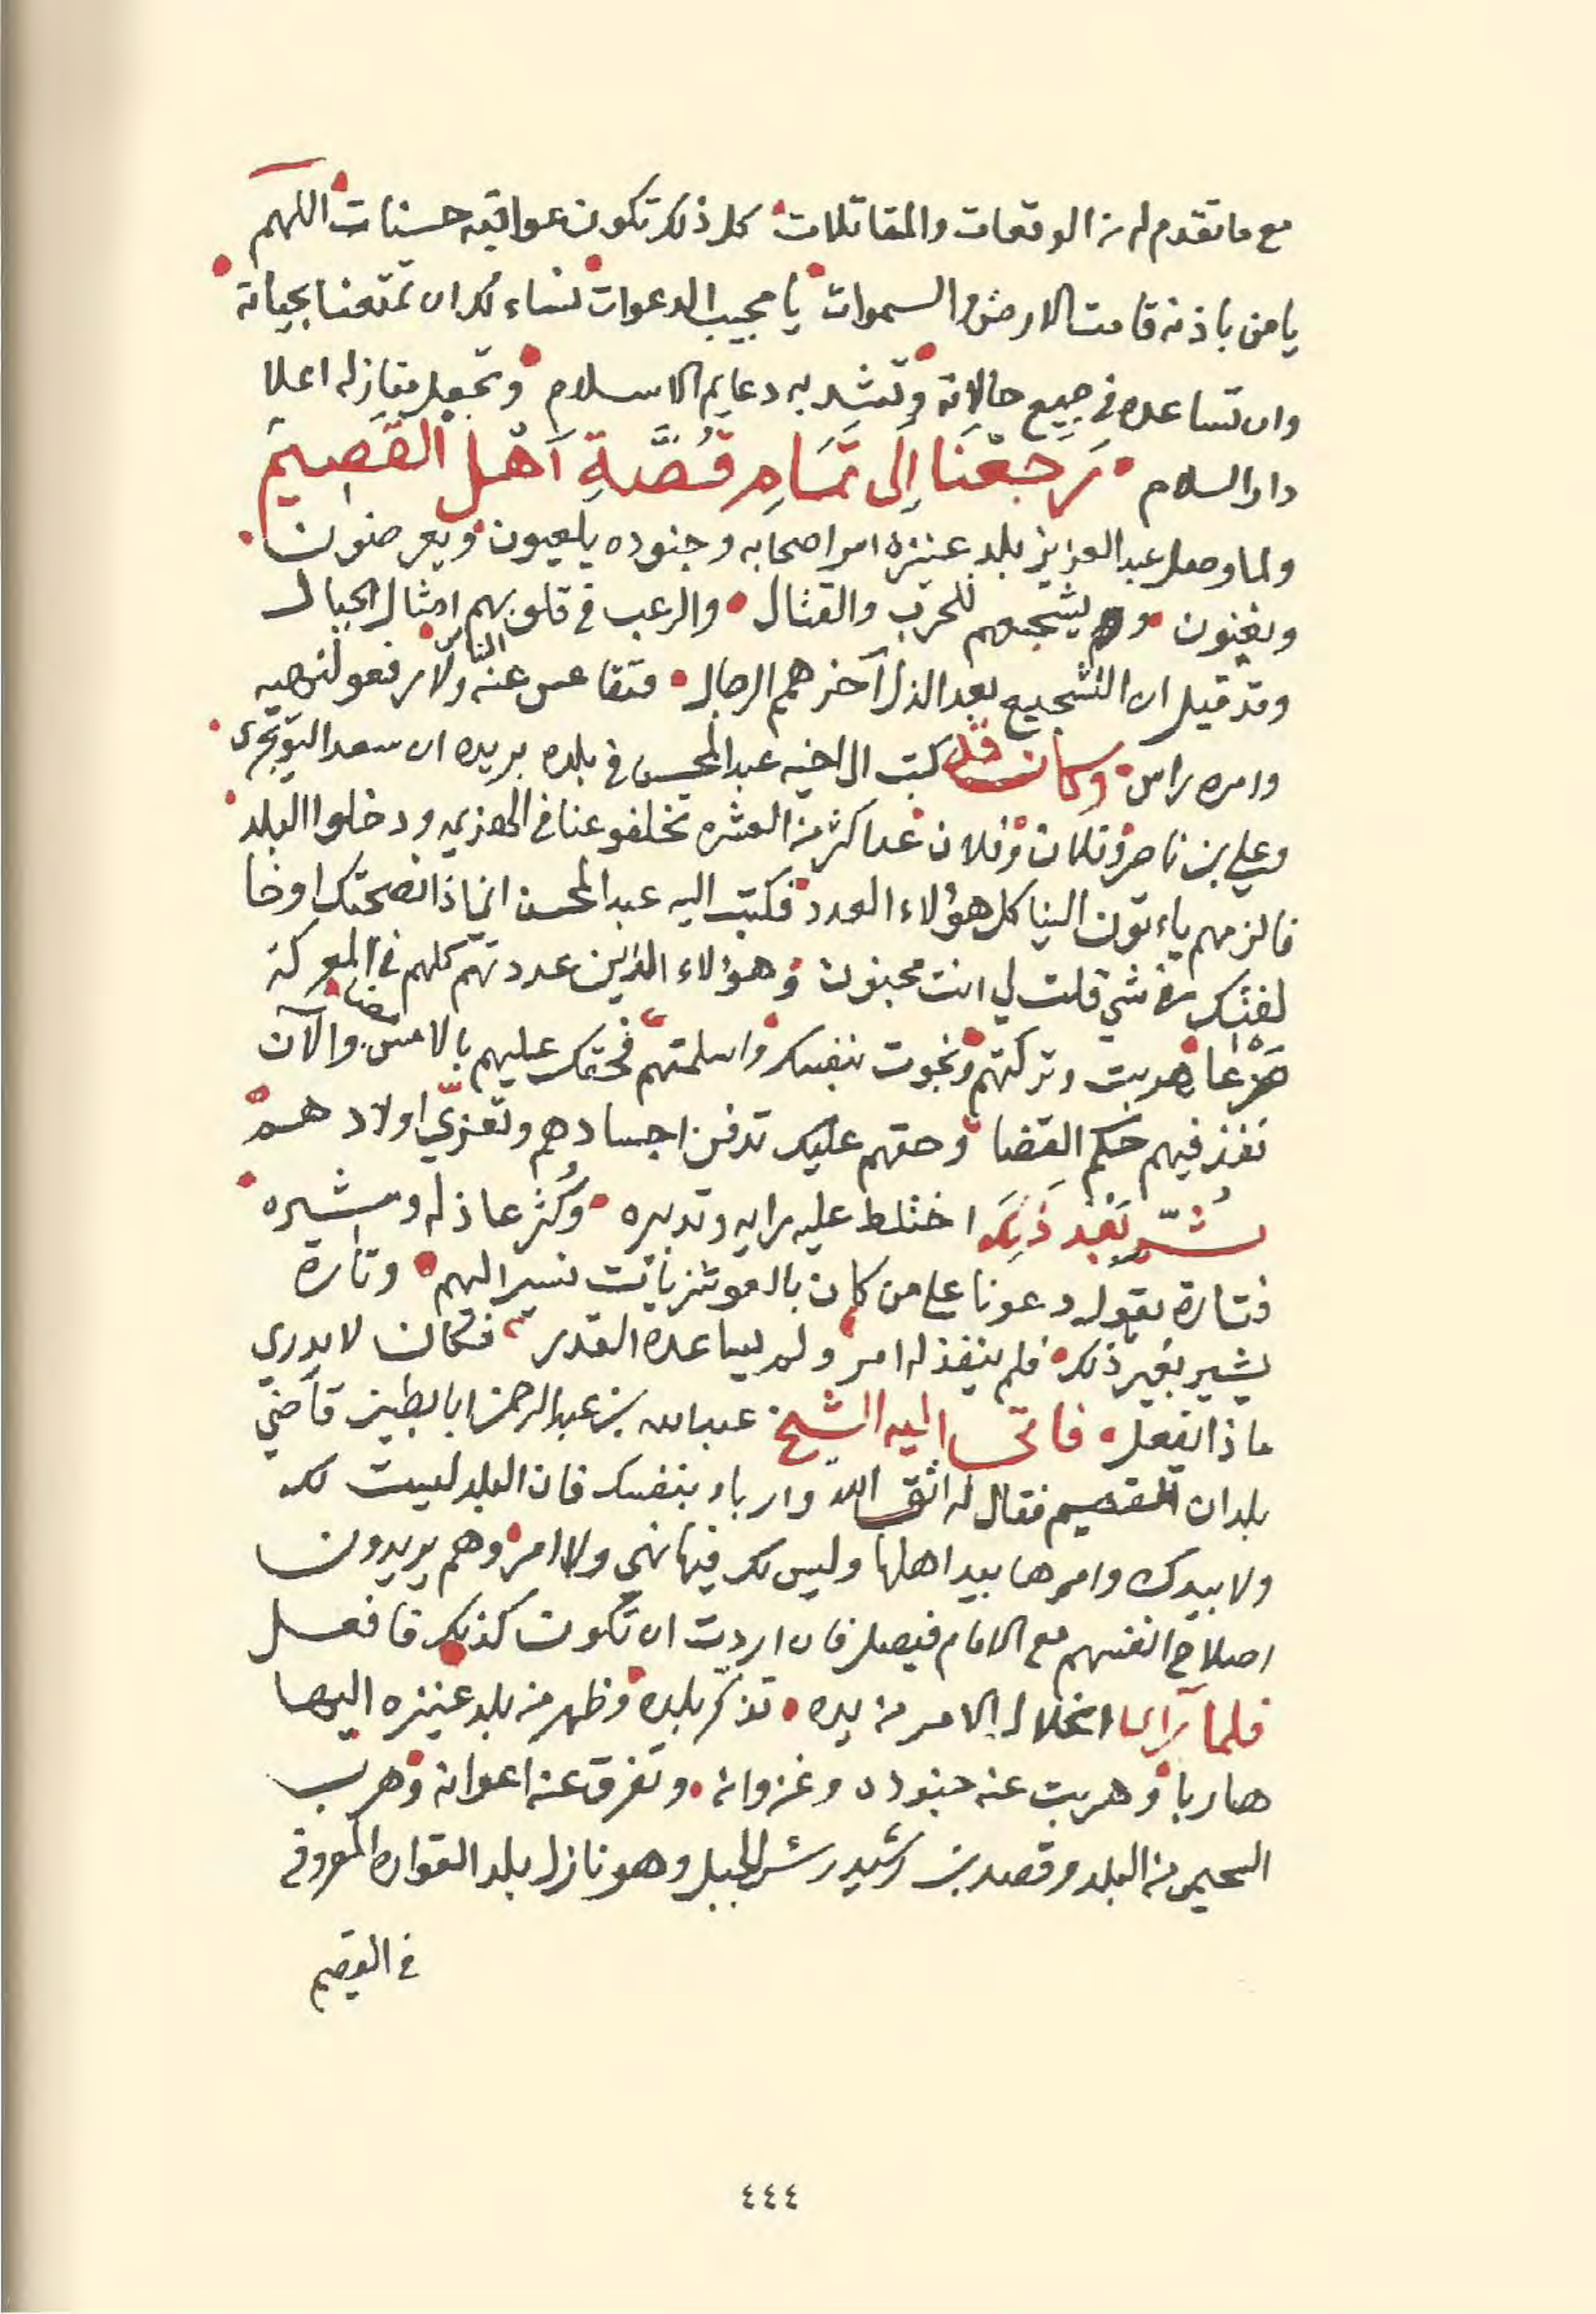 مع ما تقدم له من الوقعات والمقاتلات كل ذلك تكون عواقبه حسنات اللهم
يا من باذنه قامت الارض والسموات يا مجيب الدعوات نساءلك ان تمتعنا بحياته
وان تساعده في جميع حالاته وتشد به دعايم الاسلام وتجعل منازله اعلا
دار السلام رَجَعْنَا إِلَى تَمَامِ قُصَّةِ اَهْل القَصِيمَ
ولما وصل عبد العزيز بلد عنيزة امر اصحابه وجنوده يلعبون ويعرضون
ويغنون ويشجعهم للحرب والقتال والرعب في قلوبهم امثال الجبال
وقد قيل ان التشجيع بعد الذل آخر همم الرجال فتقاعس عنه الناس ولا رفعو لنهيه
وامره راس وكان قد كتب الى اخيه عبد المحسن في بلده بريده ان سعد التويجري
وعلي بن ناصر وفلان وفلان عد اكثر من العشره تخلفو عنا في الهزيمه ودخلوا البلد
فالزمهم ياءتون الينا كل هؤلاء العدد فكتب اليه عبد المحسن اني اذا نصحتك او خا
لفتك في شي قلت لي انت مجنون وهؤلاء الذين عددتهم كلهم في المعركة
صَرْعَا هربت وتركتهم ونجوت بنفسك واسلمتهم فحقك عليهم بالامس مضا والآن
نفذ فيهم حكم القضا وحقهم عليك تدفن اجسادهم وتعزّي اولادهم
ثُمّ بَعْد ذَلِكَ اختلط عليه رايه وتدبيره وكُثر عاذله ومشيره
فتارة يقول دعونا على من كان بالعوشزيات نسير اليهم وتارة
يشير بغير ذلك فلم ينفذ له امر ولم يساعده القدر فكان لا يدري
ماذا يفعل فاتى اليه الشيخ عبد الله بن عبد الرحمن ابا بطين قاضي
بلدان القصيم فقال له اتق الله وارباء بنفسك فان البلد ليست لك
ولا بيدك وامرها بيد اهلها وليس لك فيها نهي ولا امر وهم يريدون
اصلاح انفسهم مع الامام فيصل فان اردت ان تكون كذلك فافعل
فلما رأى انحلال الامر من يده تذكّر بلده وظهر من بلد عنيزه اليها
هاربا وهربت عنه جنوده وغزوانه وتفرق عنه اعوانه وهرب
السحيمي من البلد وقصد بن رشيد رئس الجبل وهو نازل بلد القواره المعروفه
في القصيم
٤٤٤